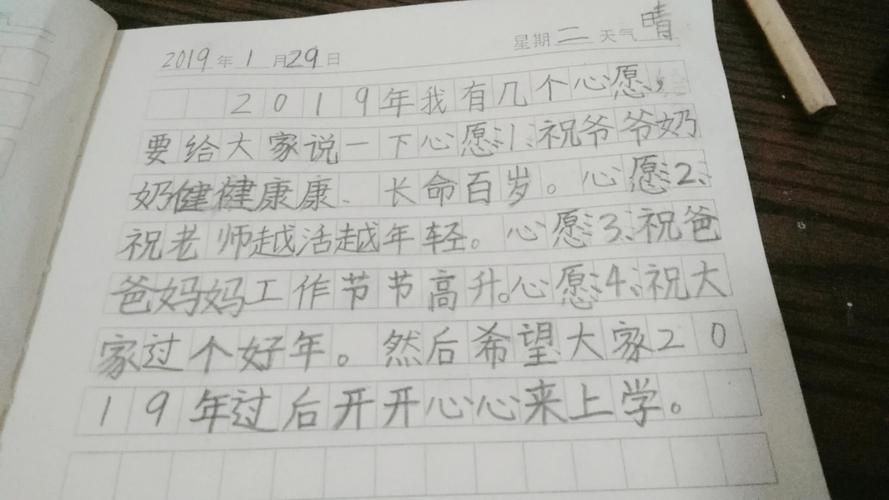 2019年1月29日 星期二 天气晴
2019年我有几个心愿,
要给大家说一下心愿:1、祝爷爷奶
奶健健康康、长命百岁。心愿:2、
祝老师越活越年轻。心愿:3、祝爸
爸妈妈工作节节高升。心愿:4、祝大
家过个好年。然后希望大家20
19年过后开开心心来上学。